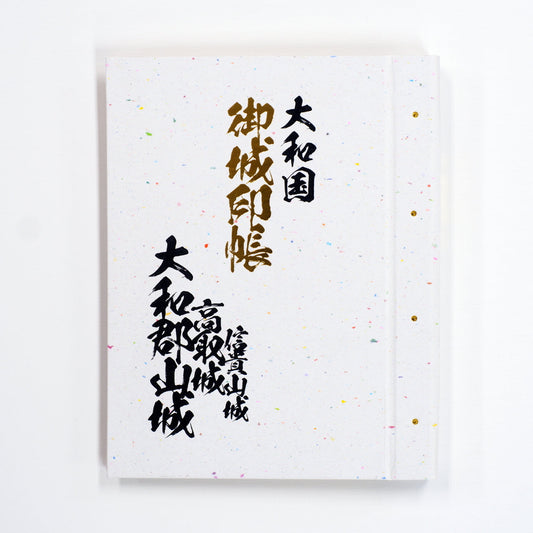 大和国
御城印帳
信貴山城
高取城
大和郡山城